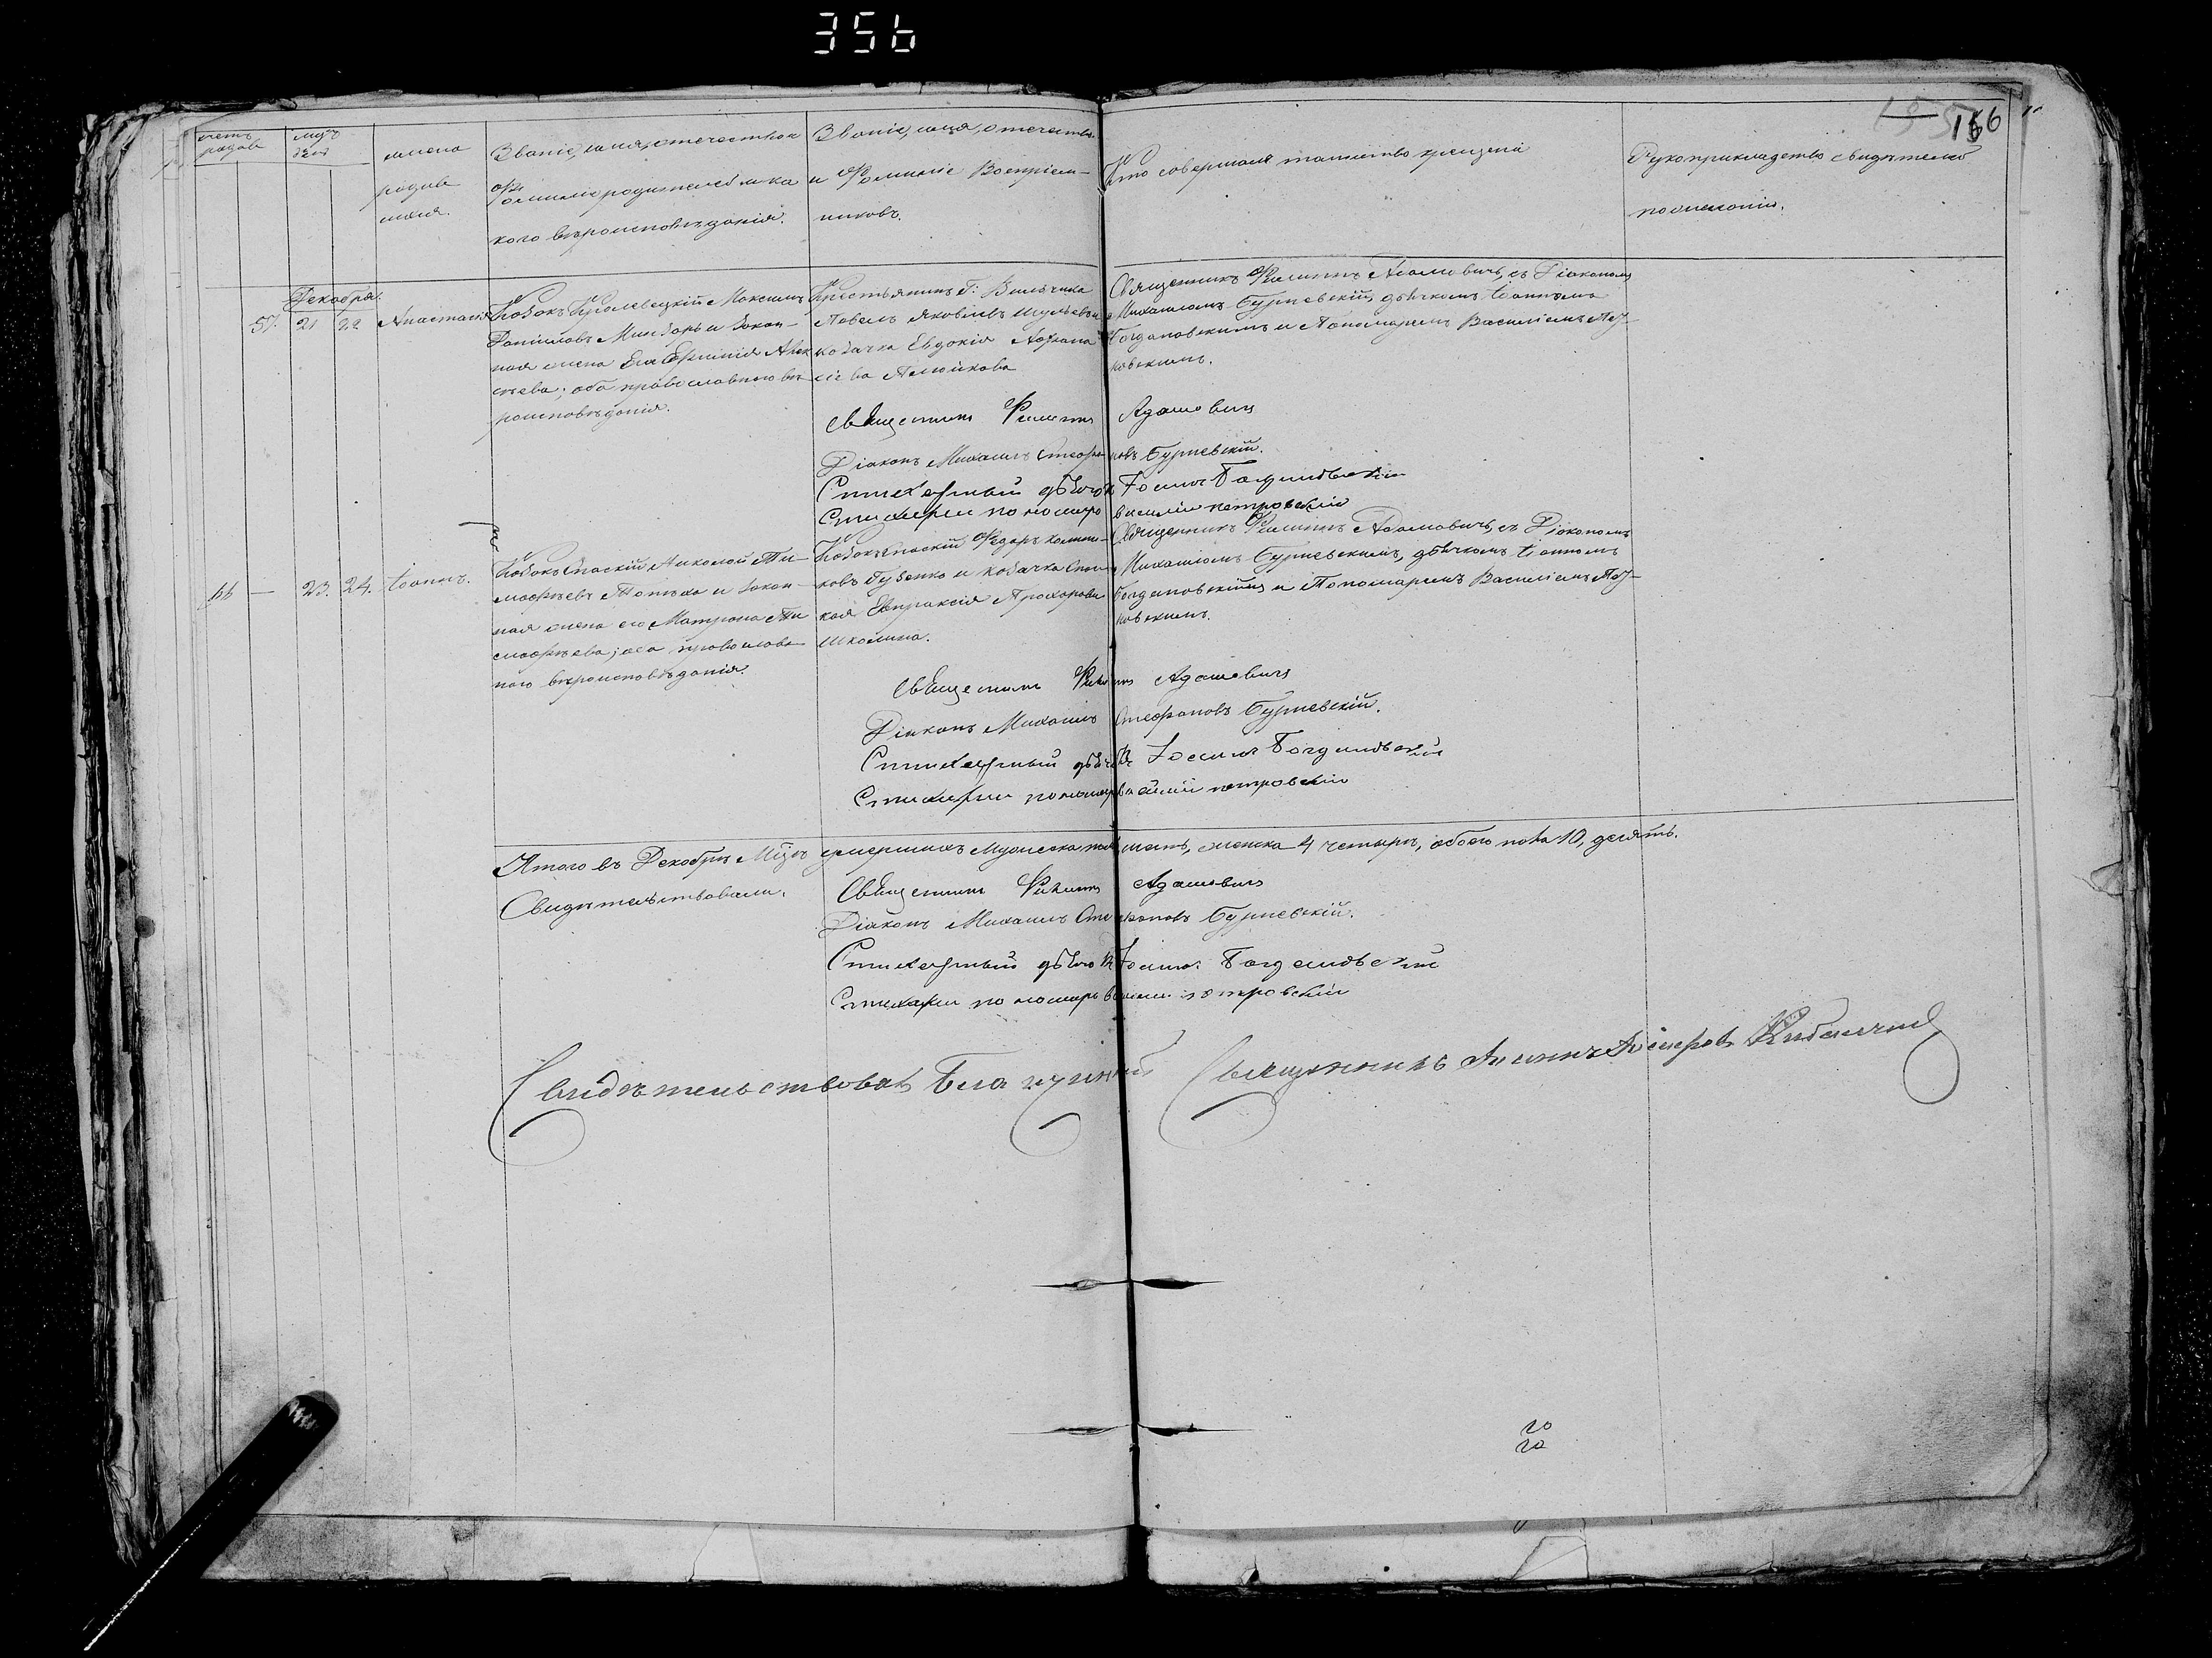 356
166
счетъ родив
мца дни
имена
родив
шихся.
Званіе, имя, отечество и
Фамилія родителей и ка
кого вѣроисповѣданія.
Званіе, имя, отечество
и Фамиліе Воспріем-
никовъ.
Кто совершалъ таинство крещенія
Рукоприкладство свидѣтелей
по желанію.
Декабря.
57. 21 22 Анастасія
Козакъ Кролевецкій Максимъ
Даніиловъ и закон-
ная жена его Алек
сѣева; оба православнаго вѣ
роисповѣданія.
Крестьянинъ Г:
Павелъ Яковлевъ и
козачка Евдокія
Священникъ Филиппъ Адамовичъ, съ Діакономъ
Михаиломъ Бурчевскій, дьячкомъ Іоанномъ
Богдановскимъ и Пономаремъ Василіемъ Пет-
ровскимъ.
Священникъ Филиппъ Адамовичъ
Діаконъ Михаилъ Стефановъ Бурчевскій.
Стихарный дьячокъ Іоаннъ Богдановскій
Стихарни пономарь василій петровскій
66 — 23. 24. Іоаннъ.
Козакъ Спаскій Николай Ти-
мофѣевъ и закон-
ная жена его Матрона Ти
мофѣева; оба православ-
наго вѣроисповѣданія.
Козакъ Спаскій Федоръ
Губенко и козачка Спас
кая Евпраксія Прохорова
Священникъ Филиппъ Адамовичъ, съ Діакономъ
Михаиломъ Бурчевскимъ, дьячкомъ Іоанномъ
Богдановскимъ и Пономаремъ Василіемъ Пет-
ровскимъ.
Священникъ Филиппъ Адамовичъ
Діаконъ Михаилъ Стефановъ Бурчевскій.
Стихарный дьячокъ Іоаннъ Богдановскій
Стихарни пономарь василій петровскій
Итого въ Декабрѣ Мцѣ умершихъ мужеска шесть, женска 4 четыри, обоего пола 10, десять.
Свидѣтельствовали.
Священникъ Филиппъ Адамовичъ
Діаконъ Михаилъ Стефановъ Бурчевскій.
Стихарный дьячокъ Іоаннъ Богдановскій
Стихарни пономарь василій петровскій
Свидѣтельствовалъ Благочинный Священникъ